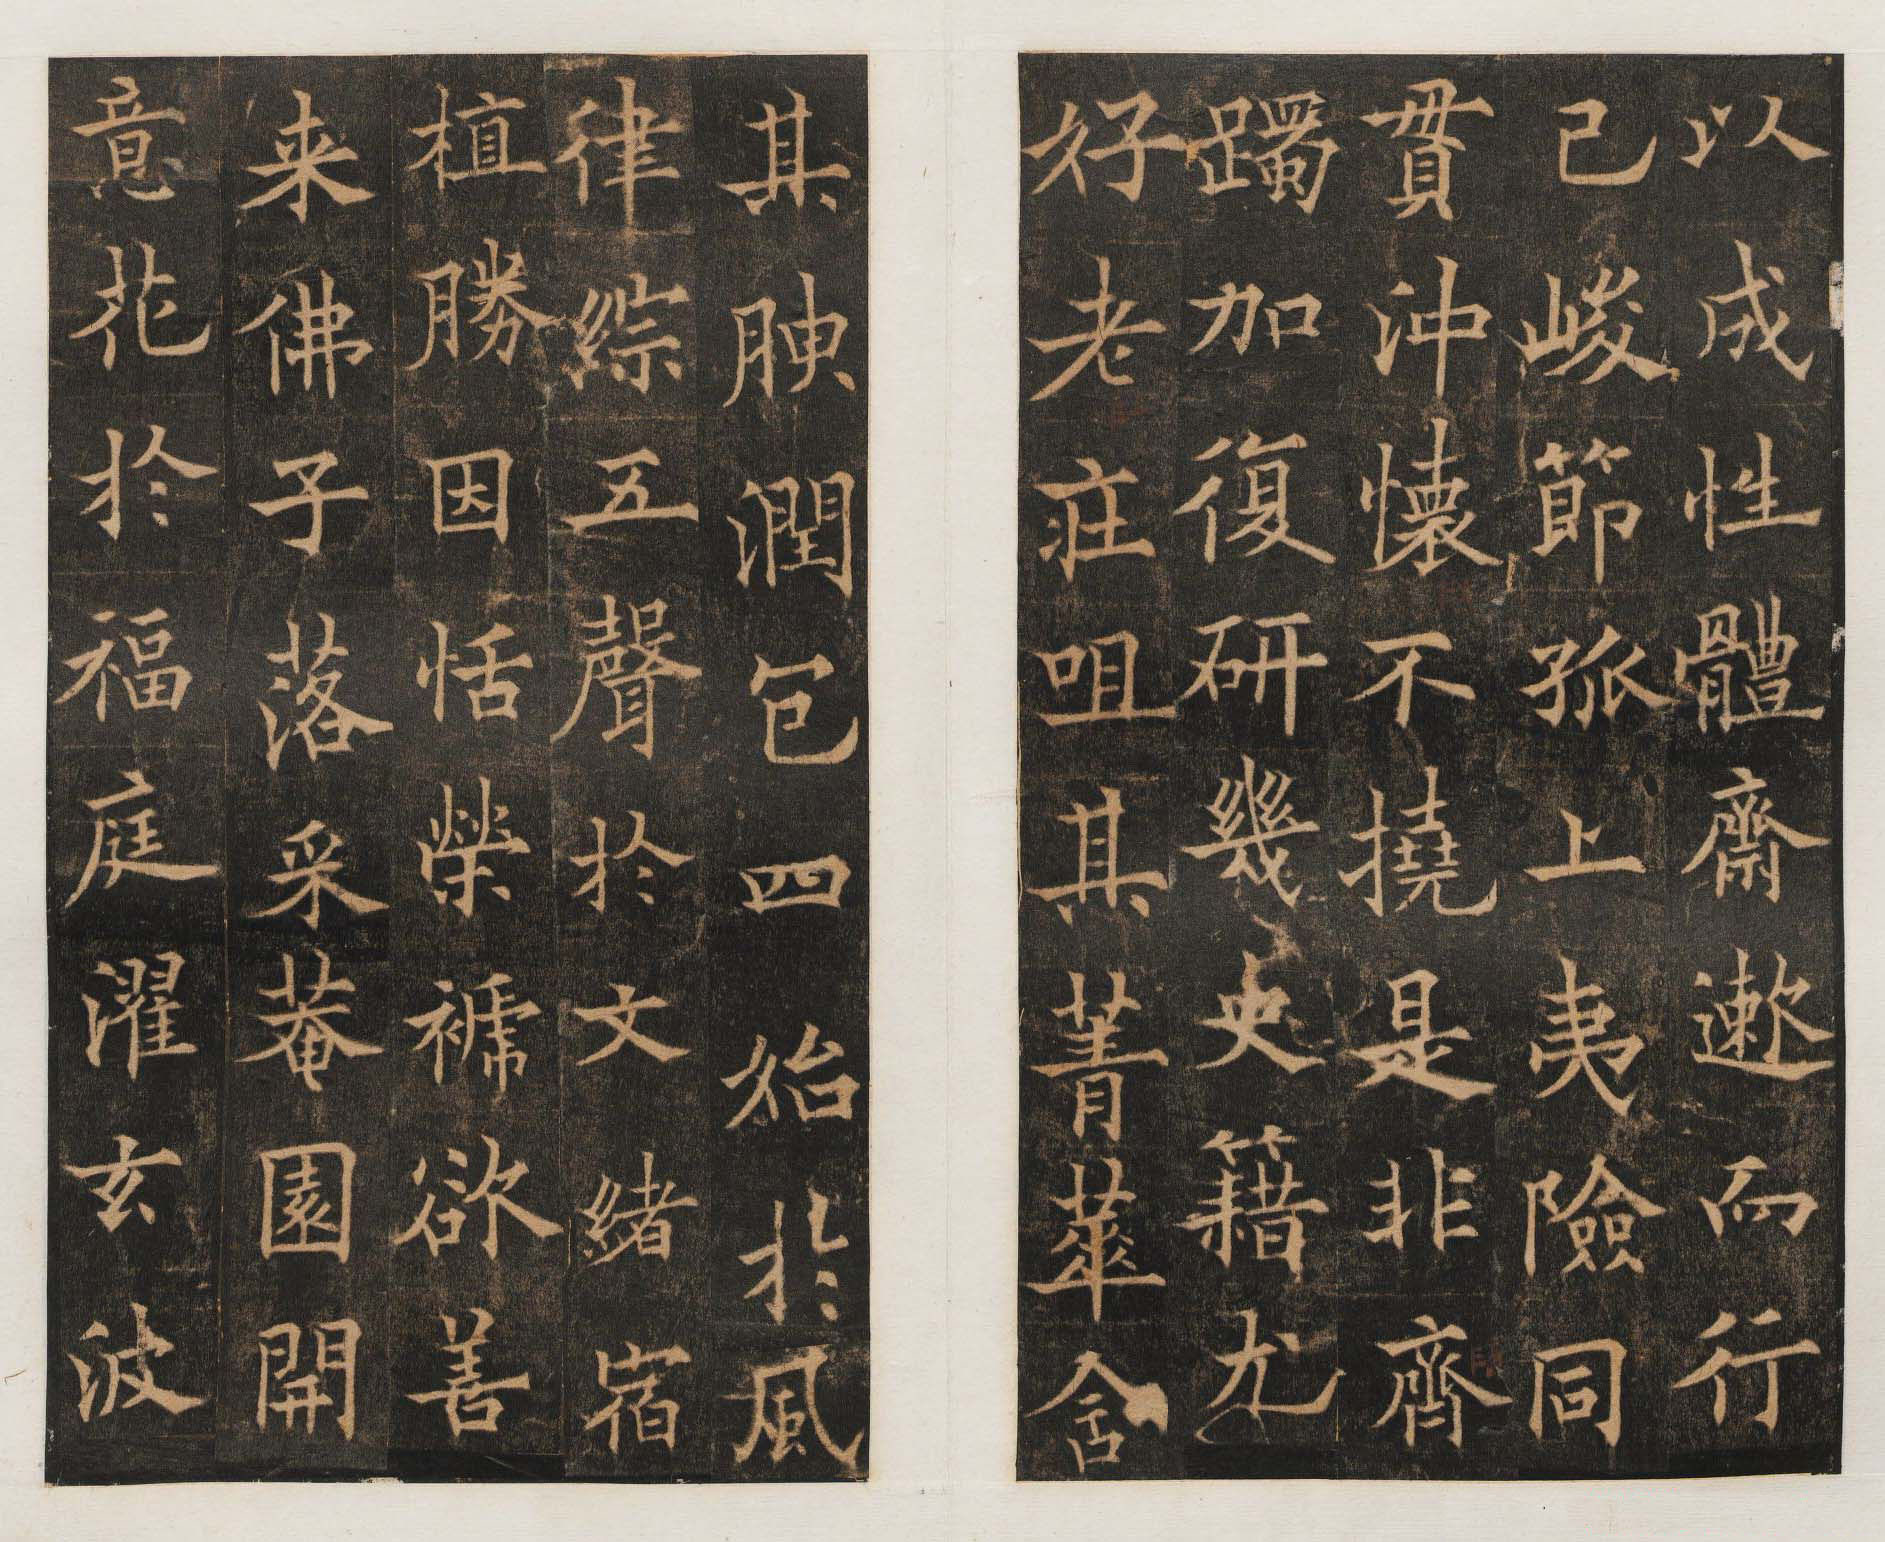 以成性體齋遬而行
己峻節孤上夷險同
貫沖懷不撓是非齊
躅加復研幾史籍尤
好老莊咀其菁華含
其腴潤包四始於風
律綜五聲於文緒宿
植勝因恬榮褫欲善
来佛子落采菴園開
意花於福庭濯玄波